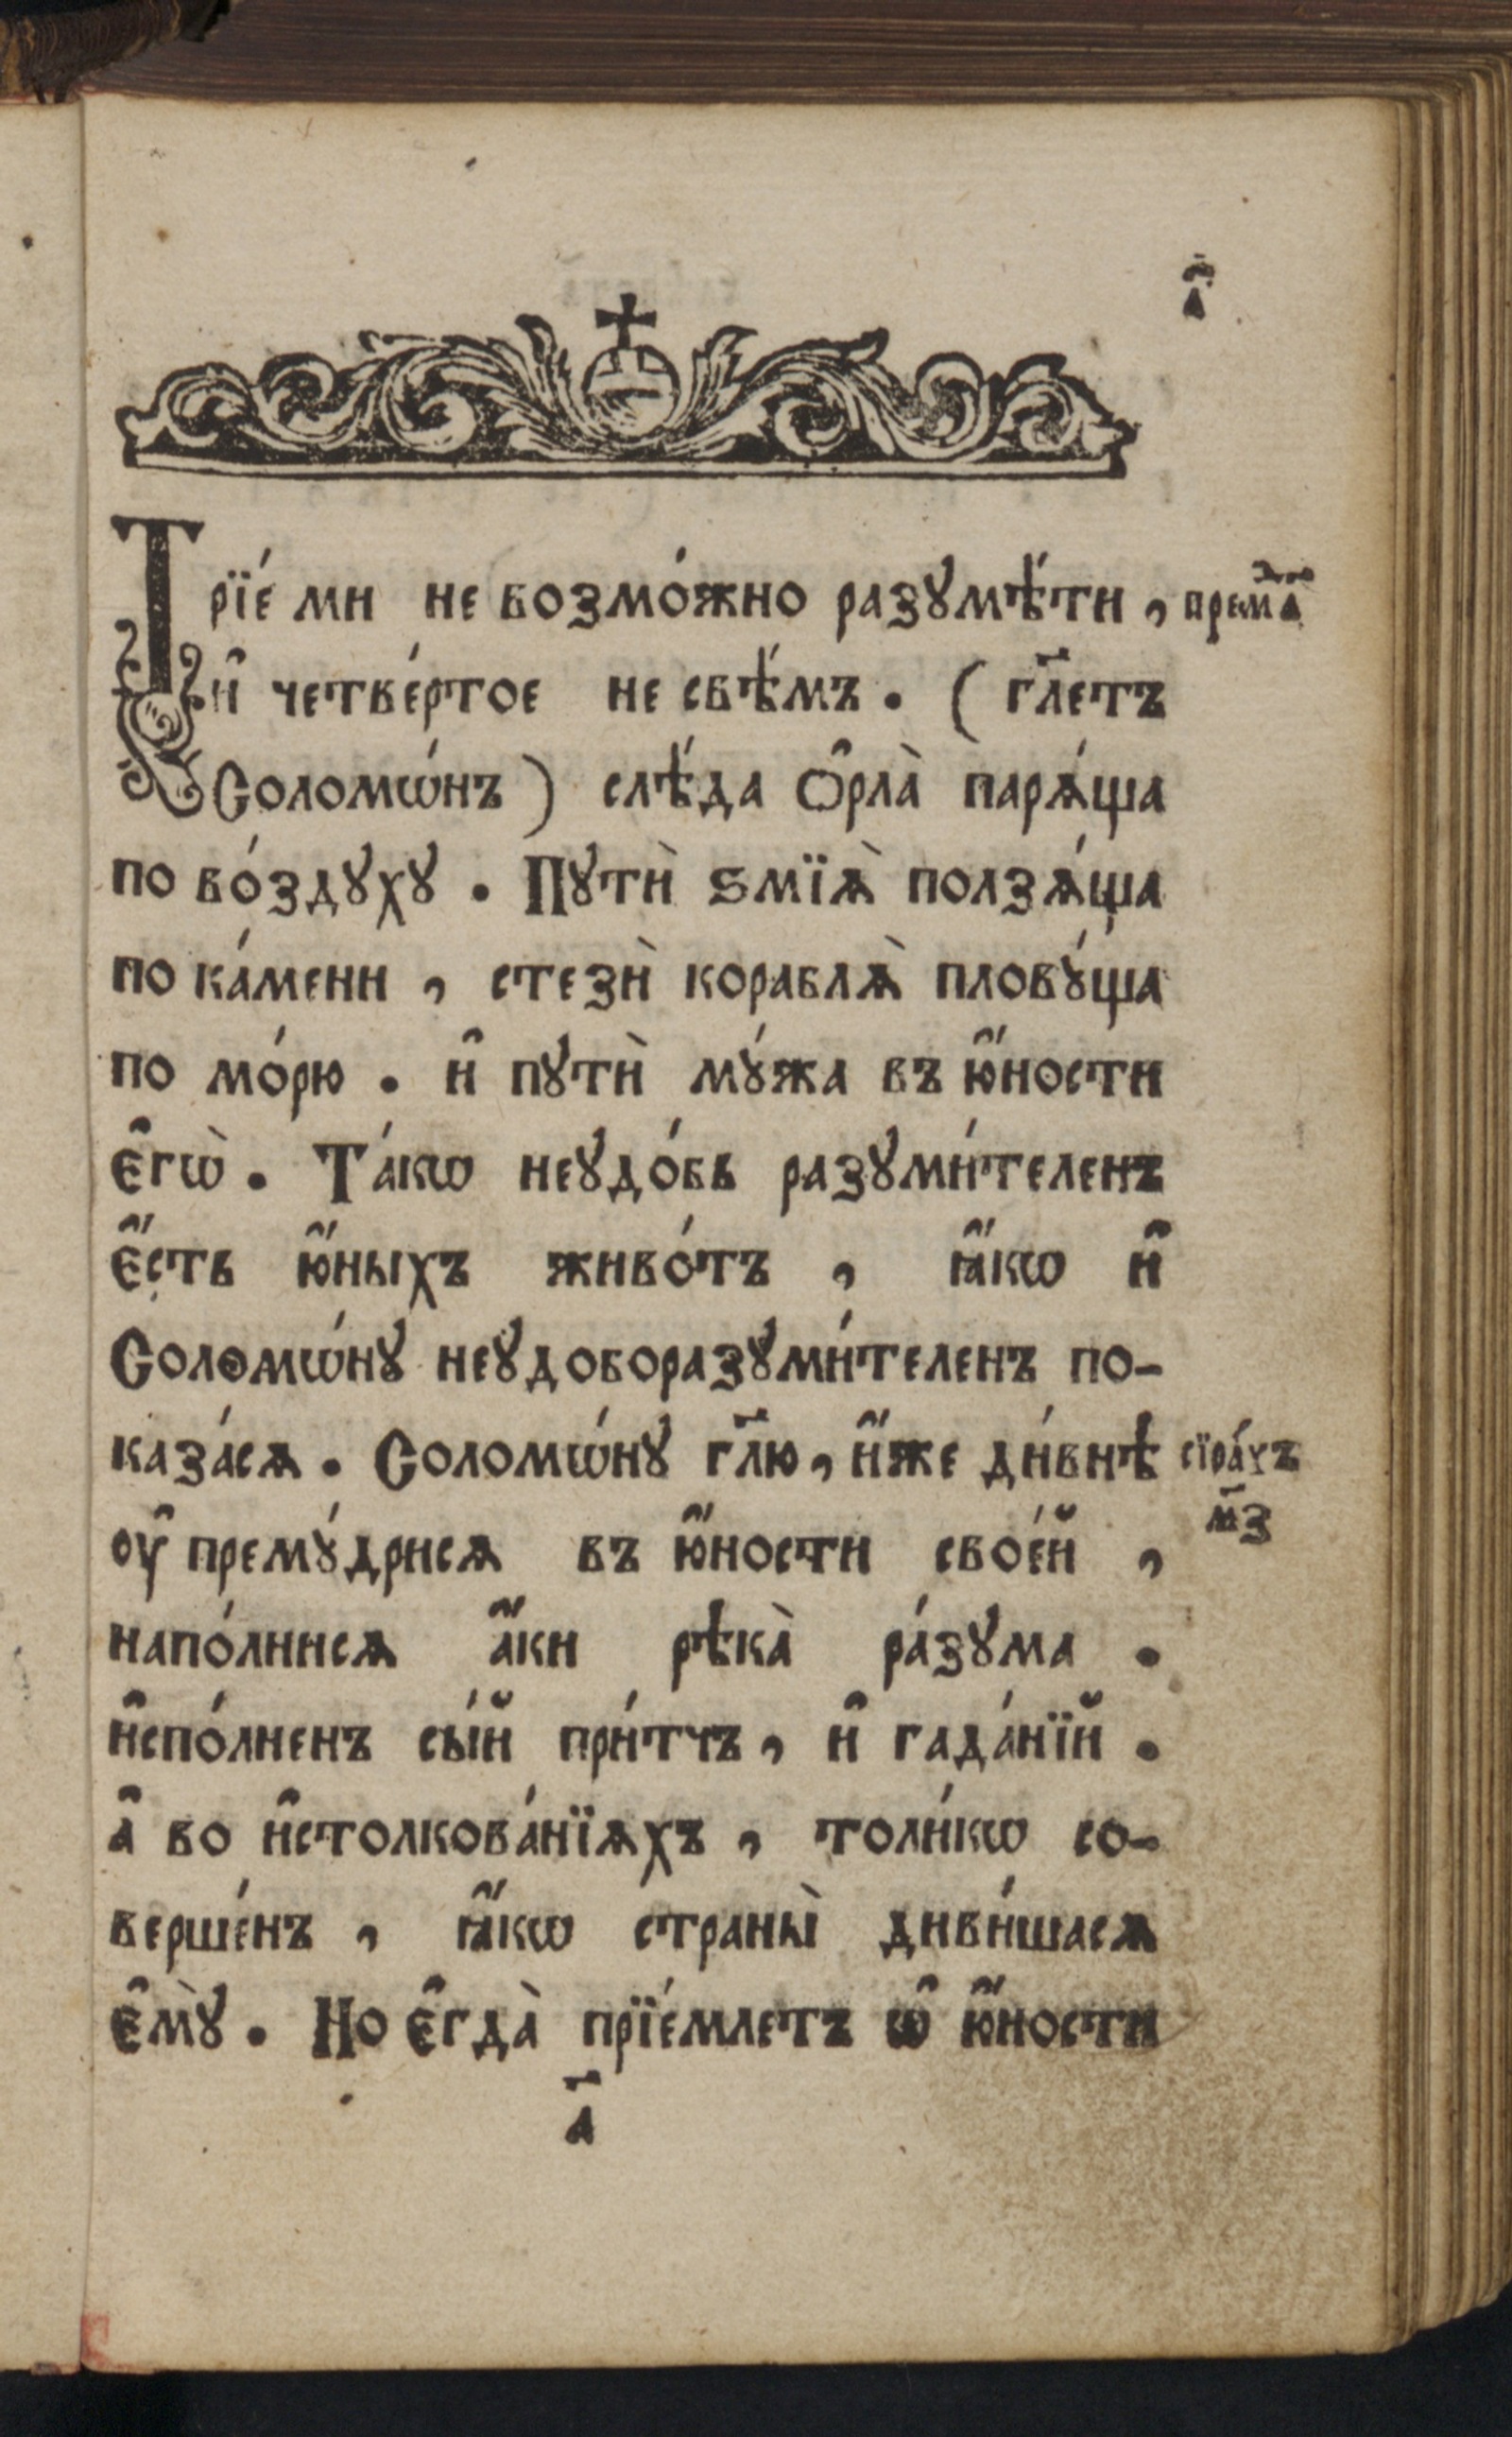 а҃
Трїе́ ми не возмо́жно разꙋмѣ́ти ,
и҆ четве́ртое не свѣ́мъ . ( гл҃етъ
Соломѡ́нъ ) слѣ́да Ѻ҆рла̀ парѧ́ща
по во́здꙋхꙋ . Пꙋтѝ ѕмїѧ̀ ползѧ́ща
по ка́мени , стезѝ кораблѧ̀ пловꙋ́ща
по мо́рю . и҆ пꙋтѝ мꙋ́жа въ ю҆́ности
є҆гѡ̀ . Та́кѡ неꙋдо́бь разꙋми́теленъ
є҆́сть ю҆́ныхъ живо́тъ , ꙗ҆́кѡ и҆
Соломѡ́нꙋ неꙋдоборазꙋми́теленъ по-
каза́сѧ . Соломѡ́нꙋ гл҃ю , и҆́же ди́внѣ
сїра́хъ
м҃з
оу҆премꙋ́дрисѧ въ ю҆́ности свое́й ,
напо́лнисѧ а҆́ки рѣка̀ ра́зꙋма .
и҆спо́лненъ сы́й при́тчъ , и҆ гада́нїй .
а҆ во и҆столкова́нїѧхъ , толи́кѡ со-
верше́нъ , ꙗ҆́кѡ страны̀ диви́шасѧ
є҆мꙋ̀ . Но є҆гда̀ прїе́млетъ ѡ҆ ю҆́ности
а҃